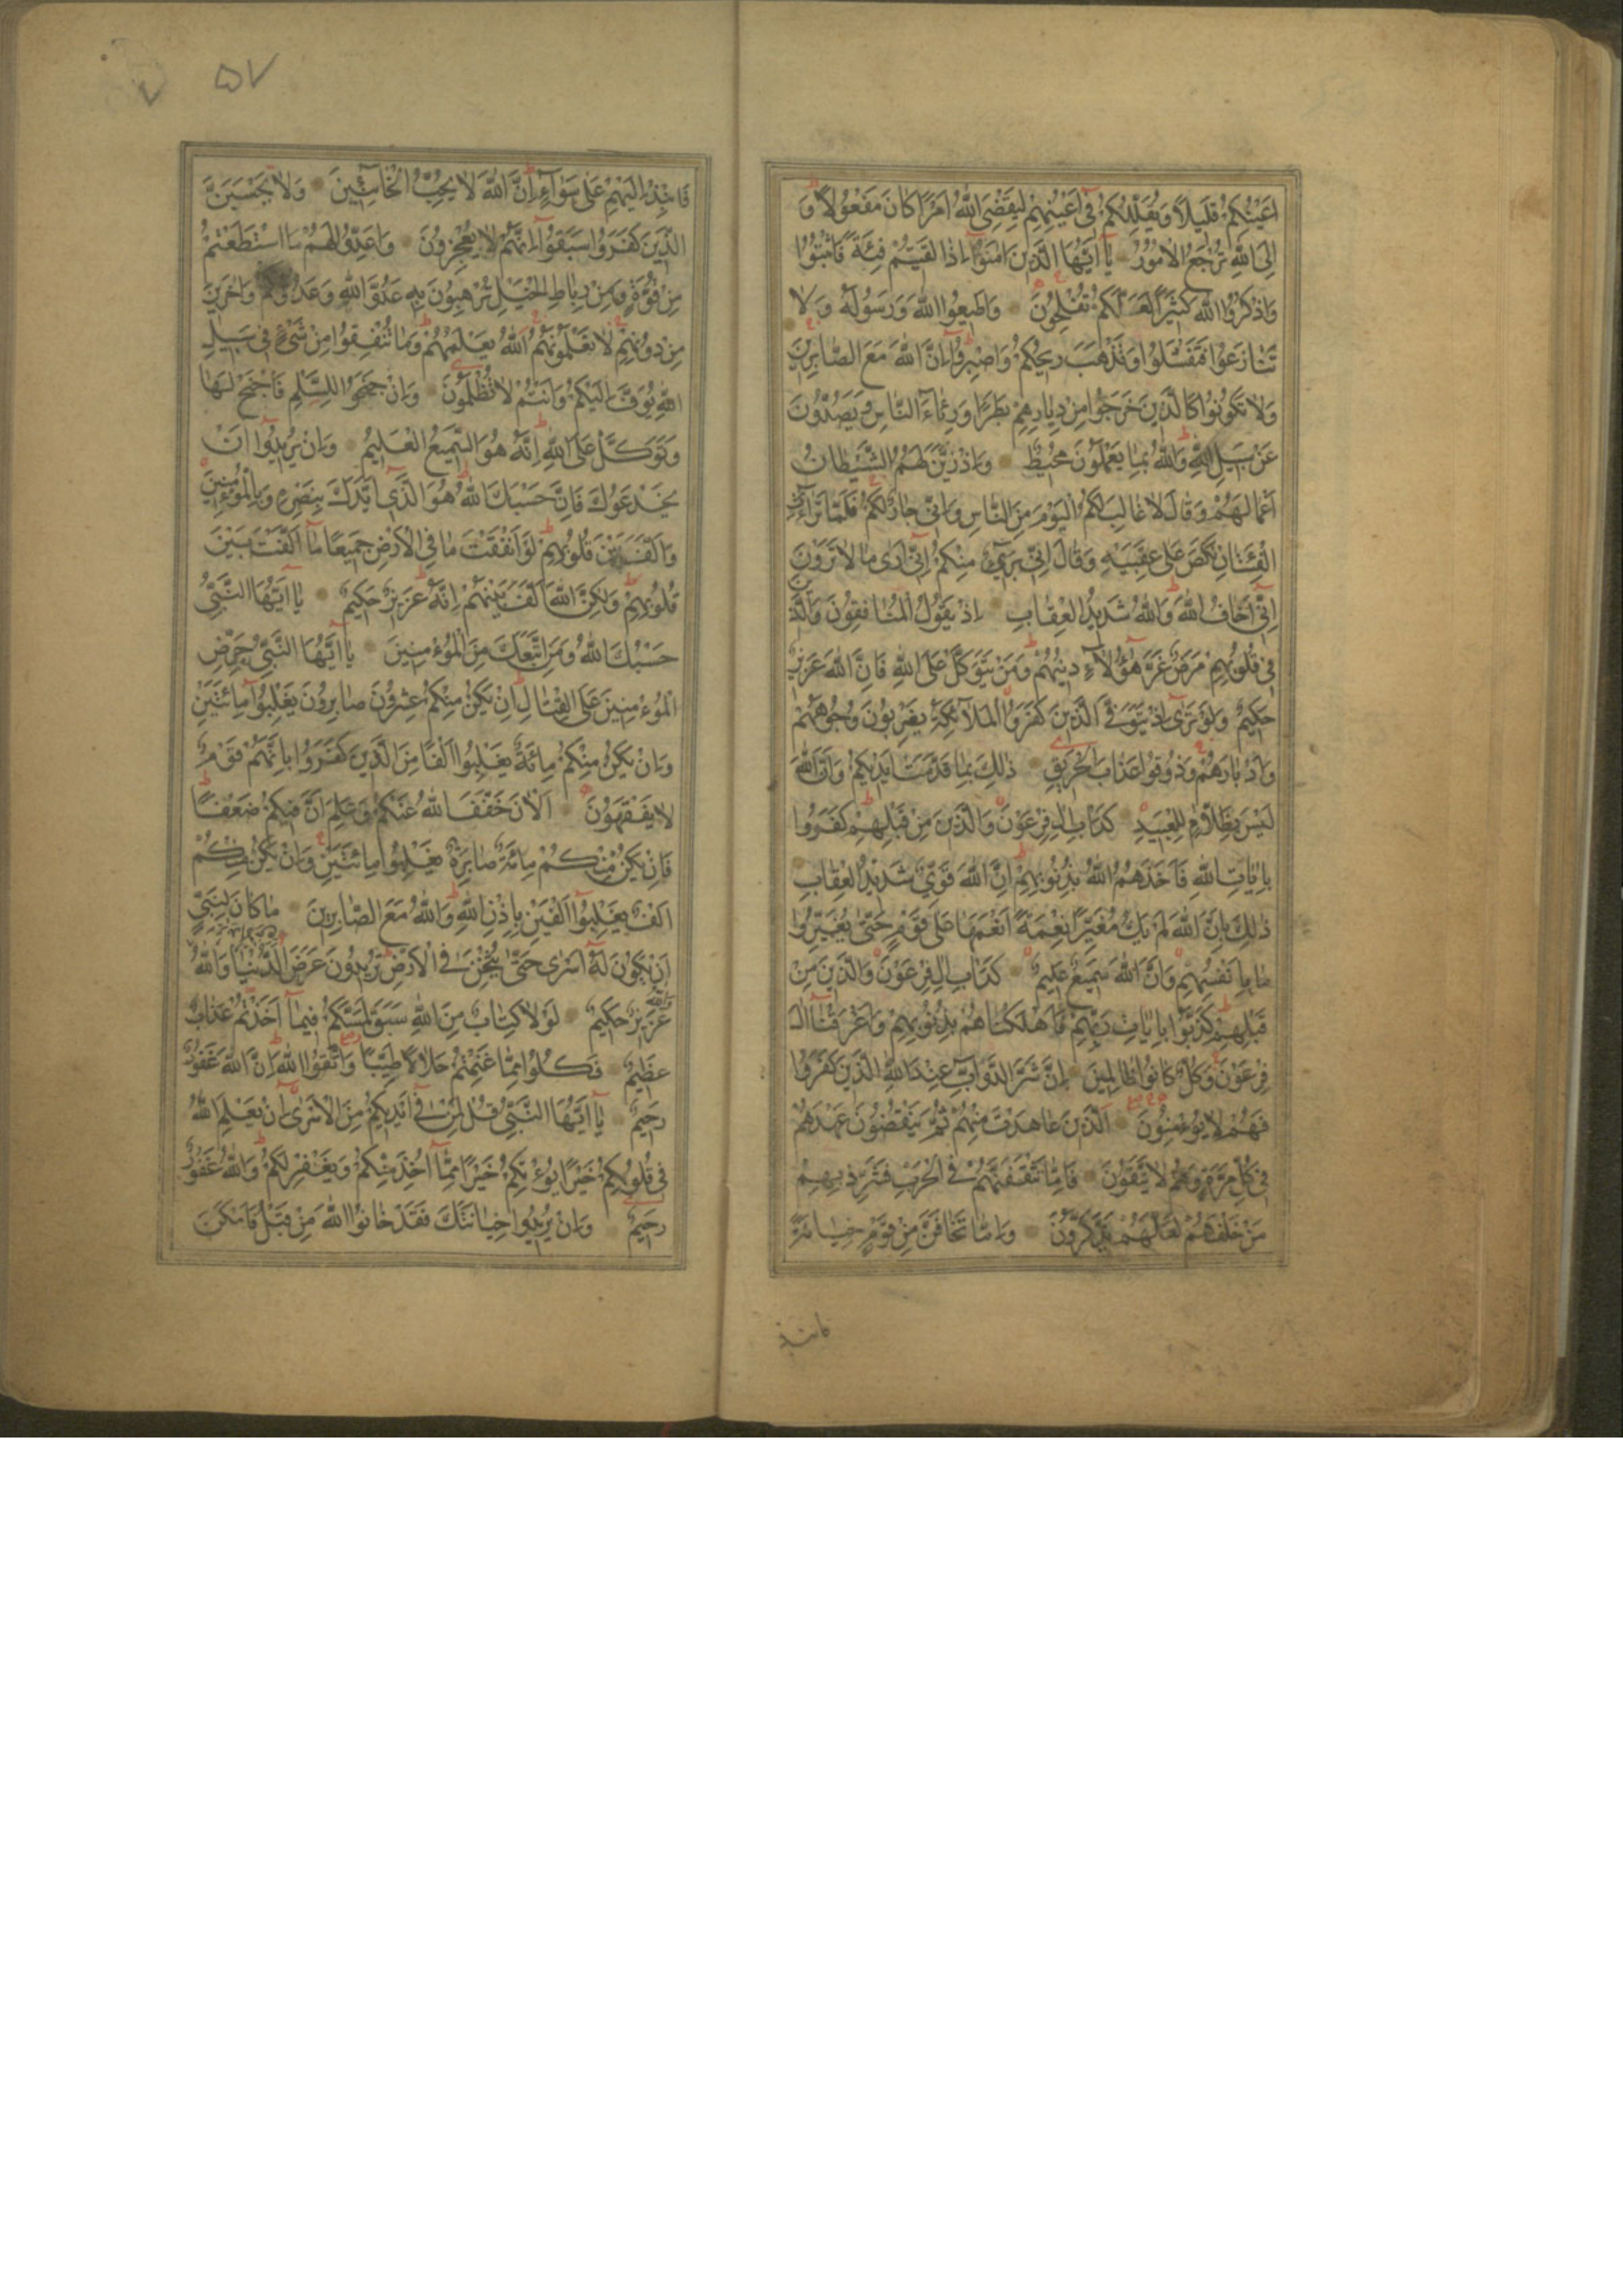 اَعْيُنِكُمْ قَليلاً وَيُقَلِّلُكُمْ فى اَعْيُنِهِمْ لِيَقْضِىَ اللّٰهُ اَمْرًا كَانَ مَفْعُولاً وَ
اِلَى اللّٰهِ تُرْجَعُ الْاُمُورُ يَا اَيُّهَا الَّذينَ اٰمَنُوا اِذَا لَقيتُمْ فِئَةً فَاثْبُتُوا
وَاذْكُرُوا اللّٰهَ كَثيرًا لَعَلَّكُمْ تُفْلِحُونَ وَاَطيعُوا اللّٰهَ وَرَسُولَهُ وَلَا
تَنَازَعُوا فَتَفْشَلُوا وَتَذْهَبَ ريحُكُمْ وَاصْبِرُوا اِنَّ اللّٰهَ مَعَ الصَّابِرينَ
وَلَا تَكُونُوا كَالَّذينَ خَرَجُوا مِنْ دِيَارِهِمْ بَطَرًا وَرِئَاءَ النَّاسِ وَيَصُدُّونَ
عَنْ سَبيلِ اللّٰهِ وَاللّٰهُ بِمَا يَعْمَلُونَ مُحيطٌ وَاِذْ زَيَّنَ لَهُمُ الشَّيْطَانُ
اَعْمَالَهُمْ وَقَالَ لَا غَالِبَ لَكُمُ الْيَوْمَ مِنَ النَّاسِ وَاِنّى جَارٌ لَكُمْ فَلَمَّا تَرَاءَتِ
الْفِئَتَانِ نَكَصَ عَلٰى عَقِبَيْهِ وَقَالَ اِنّى بَرىءٌ مِنْكُمْ اِنّى اَرٰى مَا لَا تَرَوْنَ
اِنّى اَخَافُ اللّٰهَ وَاللّٰهُ شَديدُ الْعِقَابِ اِذْ يَقُولُ الْمُنَافِقُونَ وَالَّذينَ
فى قُلُوبِهِمْ مَرَضٌ غَرَّ هٰؤُلَاءِ دينُهُمْ وَمَنْ يَتَوَكَّلْ عَلَى اللّٰهِ فَاِنَّ اللّٰهَ عَزيزٌ
حَكيمٌ وَلَوْ تَرٰى اِذْ يَتَوَفَّى الَّذينَ كَفَرُوا الْمَلَائِكَةُ يَضْرِبُونَ وُجُوهَهُمْ
وَاَدْبَارَهُمْ وَذُوقُوا عَذَابَ الْحَريقِ ذٰلِكَ بِمَا قَدَّمَتْ اَيْديكُمْ وَاَنَّ اللّٰهَ
لَيْسَ بِظَلَّامٍ لِلْعَبيدِ كَدَاْبِ اٰلِ فِرْعَوْنَ وَالَّذينَ مِنْ قَبْلِهِمْ كَفَرُوا
بِاٰيَاتِ اللّٰهِ فَاَخَذَهُمُ اللّٰهُ بِذُنُوبِهِمْ اِنَّ اللّٰهَ قَوِىٌّ شَديدُ الْعِقَابِ
ذٰلِكَ بِاَنَّ اللّٰهَ لَمْ يَكُ مُغَيِّرًا نِعْمَةً اَنْعَمَهَا عَلٰى قَوْمٍ حَتّٰى يُغَيِّرُوا
مَا بِاَنْفُسِهِمْ وَاَنَّ اللّٰهَ سَميعٌ عَليمٌ كَدَاْبِ اٰلِ فِرْعَوْنَ وَالَّذينَ مِنْ
قَبْلِهِمْ كَذَّبُوا بِاٰيَاتِ رَبِّهِمْ فَاَهْلَكْنَاهُمْ بِذُنُوبِهِمْ وَاَغْرَقْنَا اٰلَ
فِرْعَوْنَ وَكُلٌّ كَانُوا ظَالِمينَ اِنَّ شَرَّ الدَّوَابِّ عِنْدَ اللّٰهِ الَّذينَ كَفَرُوا
فَهُمْ لَا يُؤْمِنُونَ اَلَّذينَ عَاهَدْتَ مِنْهُمْ ثُمَّ يَنْقُضُونَ عَهْدَهُمْ
فى كُلِّ مَرَّةٍ وَهُمْ لَا يَتَّقُونَ فَاِمَّا تَثْقَفَنَّهُمْ فِى الْحَرْبِ فَشَرِّدْ بِهِمْ
مَنْ خَلْفَهُمْ لَعَلَّهُمْ يَذَّكَّرُونَ وَاِمَّا تَخَافَنَّ مِنْ قَوْمٍ خِيَانَةً
فانبذ
٥٧
فَانْبِذْ اِلَيْهِمْ عَلٰى سَوَاءٍ اِنَّ اللّٰهَ لَا يُحِبُّ الْخَائِنينَ وَلَا يَحْسَبَنَّ
الَّذينَ كَفَرُوا سَبَقُوا اِنَّهُمْ لَا يُعْجِزُونَ وَاَعِدُّوا لَهُمْ مَا اسْتَطَعْتُمْ
مِنْ قُوَّةٍ وَمِنْ رِبَاطِ الْخَيْلِ تُرْهِبُونَ بِهِ عَدُوَّ اللّٰهِ وَعَدُوَّكُمْ وَاٰخَرينَ
مِنْ دُونِهِمْ لَا تَعْلَمُونَهُمْ اَللّٰهُ يَعْلَمُهُمْ وَمَا تُنْفِقُوا مِنْ شَىْءٍ فى سَبيلِ
اللّٰهِ يُوَفَّ اِلَيْكُمْ وَاَنْتُمْ لَا تُظْلَمُونَ وَاِنْ جَنَحُوا لِلسَّلْمِ فَاجْنَحْ لَهَا
وَتَوَكَّلْ عَلَى اللّٰهِ اِنَّهُ هُوَ السَّميعُ الْعَليمُ وَاِنْ يُريدُوا اَنْ
يَخْدَعُوكَ فَاِنَّ حَسْبَكَ اللّٰهُ هُوَ الَّذى اَيَّدَكَ بِنَصْرِهِ وَبِالْمُؤْمِنينَ
وَاَلَّفَ بَيْنَ قُلُوبِهِمْ لَوْ اَنْفَقْتَ مَا فِى الْاَرْضِ جَميعًا مَا اَلَّفْتَ بَيْنَ
قُلُوبِهِمْ وَلٰكِنَّ اللّٰهَ اَلَّفَ بَيْنَهُمْ اِنَّهُ عَزيزٌ حَكيمٌ يَا اَيُّهَا النَّبِىُّ
حَسْبُكَ اللّٰهُ وَمَنِ اتَّبَعَكَ مِنَ الْمُؤْمِنينَ يَا اَيُّهَا النَّبِىُّ حَرِّضِ
الْمُؤْمِنينَ عَلَى الْقِتَالِ اِنْ يَكُنْ مِنْكُمْ عِشْرُونَ صَابِرُونَ يَغْلِبُوا مِائَتَيْنِ
وَاِنْ يَكُنْ مِنْكُمْ مِائَةٌ يَغْلِبُوا اَلْفًا مِنَ الَّذينَ كَفَرُوا بِاَنَّهُمْ قَوْمٌ
لَا يَفْقَهُونَ اَلْاٰنَ خَفَّفَ اللّٰهُ عَنْكُمْ وَعَلِمَ اَنَّ فيكُمْ ضَعْفًا
فَاِنْ يَكُنْ مِنْكُمْ مِائَةٌ صَابِرَةٌ يَغْلِبُوا مِائَتَيْنِ وَاِنْ يَكُنْ مِنْكُمْ
اَلْفٌ يَغْلِبُوا اَلْفَيْنِ بِاِذْنِ اللّٰهِ وَاللّٰهُ مَعَ الصَّابِرينَ مَا كَانَ لِنَبِىٍّ
اَنْ يَكُونَ لَهُ اَسْرٰى حَتّٰى يُثْخِنَ فِى الْاَرْضِ تُريدُونَ عَرَضَ الدُّنْيَا وَاللّٰهُ
عَزيزٌ حَكيمٌ لَوْلَا كِتَابٌ مِنَ اللّٰهِ سَبَقَ لَمَسَّكُمْ فيمَا اَخَذْتُمْ عَذَابٌ
عَظيمٌ فَكُلُوا مِمَّا غَنِمْتُمْ حَلَالًا طَيِّبًا وَاتَّقُوا اللّٰهَ اِنَّ اللّٰهَ غَفُورٌ
رَحيمٌ يَا اَيُّهَا النَّبِىُّ قُلْ لِمَنْ فى اَيْديكُمْ مِنَ الْاَسْرٰى اِنْ يَعْلَمِ اللّٰهُ
فى قُلُوبِكُمْ خَيْرًا يُؤْتِكُمْ خَيْرًا مِمَّا اُخِذَ مِنْكُمْ وَيَغْفِرْ لَكُمْ وَاللّٰهُ غَفُورٌ
رَحيمٌ وَاِنْ يُريدُوا خِيَانَتَكَ فَقَدْ خَانُوا اللّٰهَ مِنْ قَبْلُ فَاَمْكَنَ